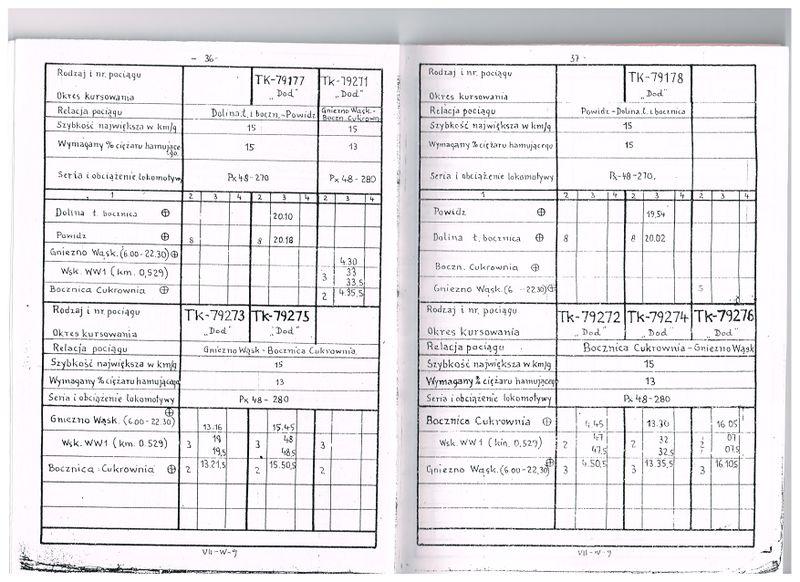 - 36 -
Rodzaj i nr. pociągu TK-79177 TK-79271
Okres kursowania „Dod" „Dod"
Relacja pociągu Dolina.ł. z boczn.-Powidz Gniezno Wąsk.- Boczn. Cukrown
Szybkość największa w km/g 15 15
Wymagany % ciężaru hamującego. 15 13
Seria i obciążenie lokomotywy Px 48-270 Px 48-280
1 2 3 4 2 3 4 2 3 4
Dolina ł. bocznica ⊕ 20.10
Powidz ⊕ 8 8 20.18
Gniezno Wąsk.(6.00-22.30)⊕ 4.30
Wsk. WW1 (km. 0,529) 3 33
33,5
Bocznica Cukrownia ⊕ 2 4.35,5
Rodzaj i nr. pociągu TK-79273 TK-79275
Okres kursowania „Dod" „Dod"
Relacja pociągu Gniezno Wąsk-Bocznica Cukrownia
Szybkość największa w km/g 15
Wymagany % ciężaru hamującego 13
Seria i obciążenie lokomotywy Px 48-280
Gniezno Wąsk. (6.00-22.30) ⊕ 13.16 15.45
Wsk. WW1 (km. 0.529) 3 19 3 48 3
19,5 48,5
Bocznica Cukrownia ⊕ 2 13.21,5 2 15.50,5 2
VII-W-9
37
Rodzaj i nr. pociągu TK-79178
Okres kursowania „Dod"
Relacja pociągu Powidz-Dolina.ł. z bocznica
Szybkość największa w km/g 15
Wymagany % ciężaru hamującego 15
Seria i obciążenie lokomotywy Px-48-270.
1 2 3 4 2 3 4 2 3 4
Powidz ⊕ 19.54
Dolina ł. bocznica ⊕ 8 8 20.02
Boczn. Cukrownia ⊕
Gniezno Wąsk.(6 -22.30)⊕ 5
Rodzaj i nr. pociągu TK-79272 TK-79274 TK-79276
Okres kursowania „Dod" „Dod" „Dod"
Relacja pociągu Bocznica Cukrownia-Gniezno Wąsk
Szybkość największa w km/g 15
Wymagany % ciężaru hamującego 13
Seria i obciążenie lokomotywy Px 48-280
Bocznica Cukrownia ⊕ 4.45 13.30 16.05
Wsk. WW1 (km. 0,529) 2 47 2 32 2 07
47,5 32,5 07,5
Gniezno Wąsk.(6.00-22,30)⊕ 3 4.50,5 3 13.35,5 3 16.10,5
VII-W-9